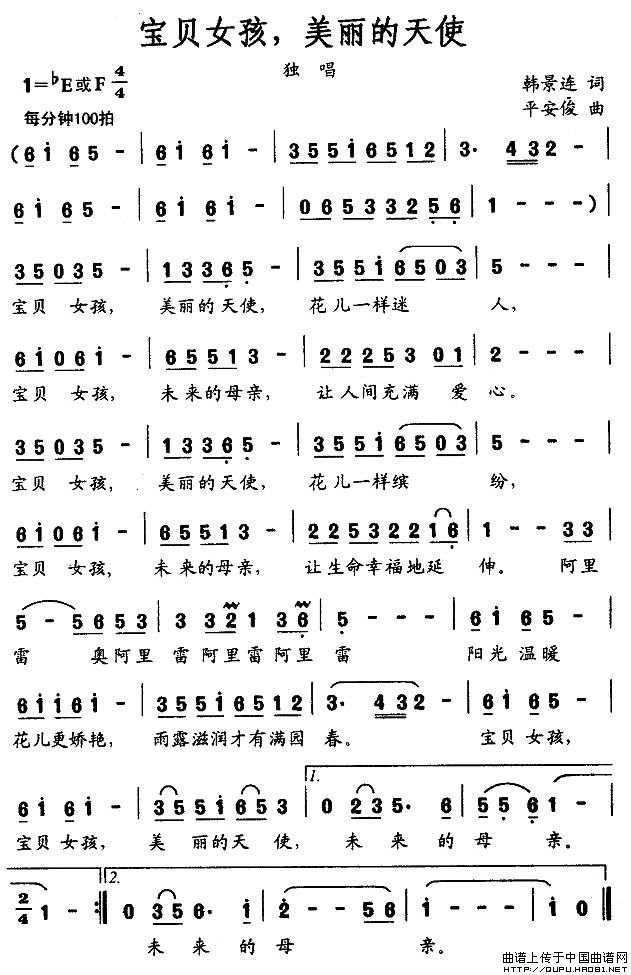 宝贝女孩，美丽的天使
独 唱
1=♭E或F 4/4
韩景连 词
每分钟100拍
平安俊 曲
(6i 65 - | 6i 6i - | 355i6512 | 3· 432 - |
6i 65 - | 6i 6i - | 06533256 | 1 - - ) |
35035 - | 13365 - | 355i6503 | 5 - - - |
宝贝 女孩， 美丽的天使， 花儿一样迷 人，
6i06i - | 65513 - | 22253 01 | 2 - - - |
宝贝 女孩， 未来的母亲， 让人间充满 爱 心。
35035 - | 13365 - | 355i6503 | 5 - - - |
宝贝 女孩， 美丽的天使， 花儿一样缤 纷，
6i06i - | 65513 - | 22532216 | 1 - - 33 |
宝贝 女孩， 未来的母亲， 让生命幸福地延 伸。 阿里
5 - 5653 | 3 321 36 | 5 - - - | 6i 65 - |
雷 奥阿里 雷阿里雷阿里 雷 阳光 温暖
6ii6i - | 355i6512 | 3· 432 - | 6i 65 - |
花儿更娇艳， 雨露滋润才有满园 春。 宝贝 女孩，
1.
6i 6i - | 355i653 | 0 235· 6 | 55 6 1 - |
宝贝 女孩， 美 丽的天 使， 未 来 的 母 亲。
2.
2/4 1 - :‖ 0 356· i | 2 - - 56 | i - - - | i - - - ‖
未 来 的 母 亲。
曲谱上传于中国曲谱网
HTTP://QUPU.HAO81.NET